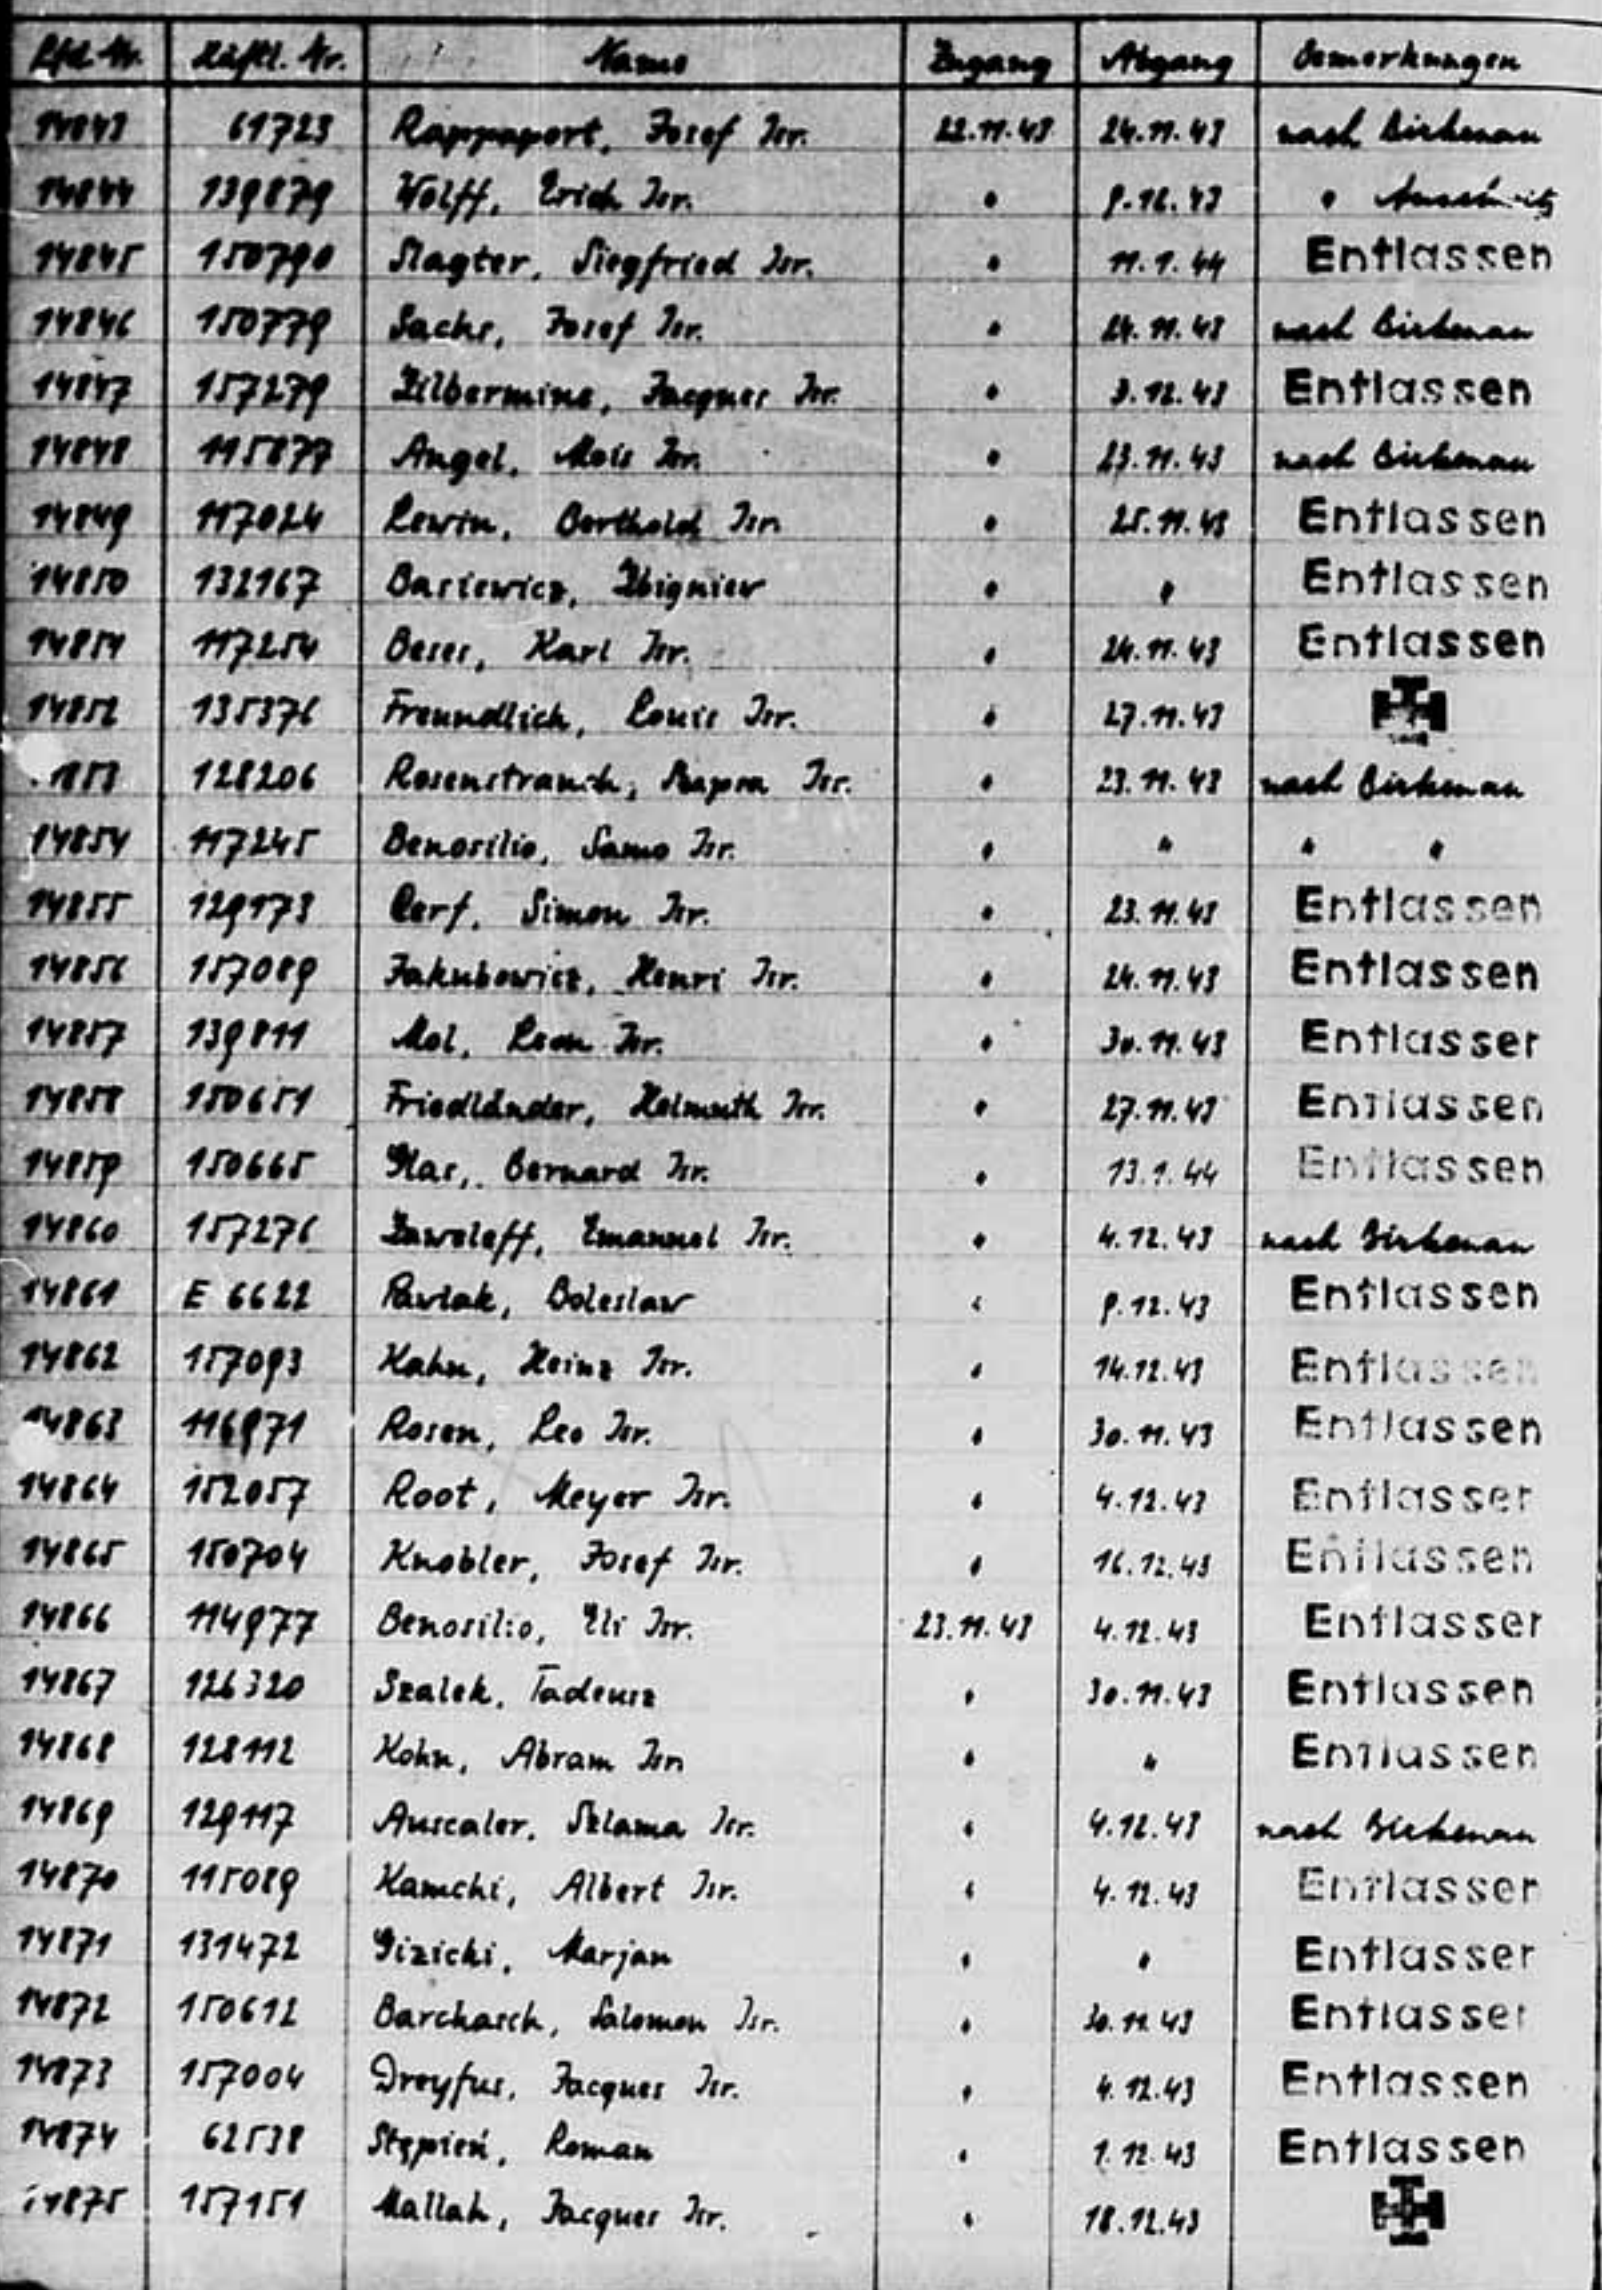 Lfd. Nr. Häftl. Nr. Name Zugang Abgang Bemerkungen
14843 61723 Rappaport, Josef Isr. 22.11.43 24.11.43 nach Birkenau
14844 139879 Wolff, Erich Isr. " 9.12.43 " Auschwitz
14845 150790 Slagter, Siegfried Isr. " 11.1.44 Entlassen
14846 150779 Sachs, Josef Isr. " 24.11.43 nach Birkenau
14847 157279 Zilbermine, Jacques Isr. " 3.12.43 Entlassen
14848 115877 Angel, Mois Isr. " 23.11.43 nach Birkenau
14849 117024 Lewin, Berthold Isr. " 25.11.43 Entlassen
14850 132167 Basiewicz, Zbigniew " " Entlassen
14851 117254 Beses, Karl Isr. " 24.11.43 Entlassen
14852 135376 Freundlich, Louis Isr. " 27.11.43
1853 128206 Rosenstrauch, Isr. " 23.11.43 nach Birkenau
14854 117245 Benosilio, Samo Isr. " " " "
14855 129173 Cerf, Simon Isr. " 23.11.43 Entlassen
14856 157089 Jakubowicz, Henri Isr. " 24.11.43 Entlassen
14857 139811 Mol, Leon Isr. " 30.11.43 Entlassen
14858 150651 Friedländer, Helmuth Isr. " 27.11.43 Entlassen
14859 150665 Glas, Bernard Isr. " 13.1.44 Entlassen
14860 157276 Zawoloff, Emanuel Isr. " 4.12.43 nach Birkenau
14861 E 6622 Pawlak, Boleslaw " 9.12.43 Entlassen
14862 157093 Kahn, Heinz Isr. " 14.12.43 Entlassen
14863 116971 Rosen, Leo Isr. " 30.11.43 Entlassen
14864 152057 Root, Meyer Isr. " 4.12.43 Entlassen
14865 150704 Knobler, Josef Isr. " 16.12.43 Entlassen
14866 114977 Benosilio, Eli Isr. 23.11.43 4.12.43 Entlassen
14867 126320 Szalek, Tadeusz " 30.11.43 Entlassen
14868 128112 Kohn, Abram Isr. " " Entlassen
14869 129117 Auscaler, Szlama Isr. " 4.12.43 nach Birkenau
14870 115089 Kamchi, Albert Isr. " 4.12.43 Entlassen
14871 131472 Gizicki, Marjan " " Entlassen
14872 150612 Barchasch, Salomon Isr. " 30.11.43 Entlassen
14873 157004 Dreyfus, Jacques Isr. " 4.12.43 Entlassen
14874 62538 Stępień, Roman " 1.12.43 Entlassen
14875 157151 Mallah, Jacques Isr. " 18.12.43